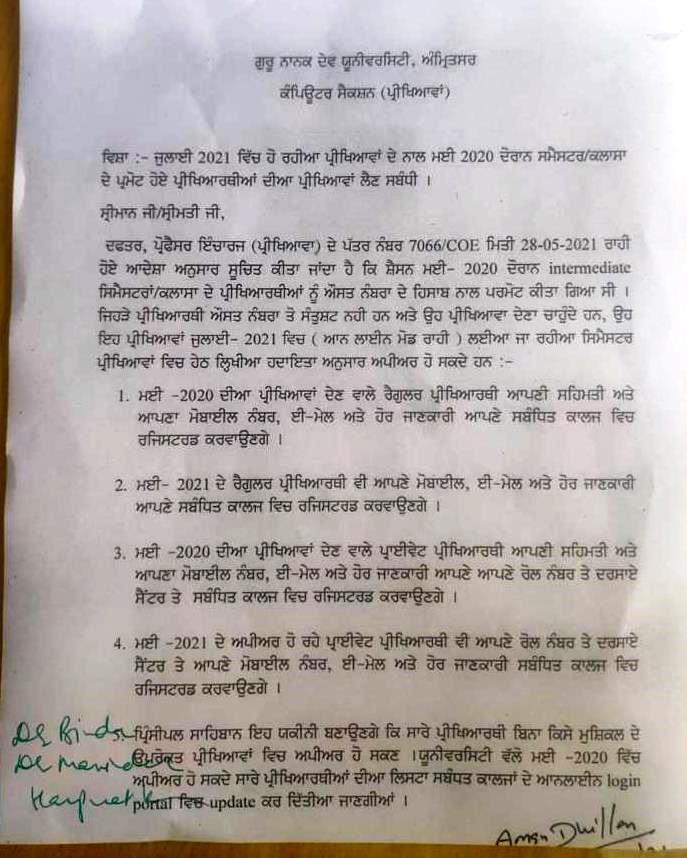 ਗੁਰੂ ਨਾਨਕ ਦੇਵ ਯੂਨੀਵਰਸਿਟੀ, ਅੰਮ੍ਰਿਤਸਰ
ਕੰਪਿਊਟਰ ਸੈਕਸ਼ਨ (ਪ੍ਰੀਖਿਆਵਾਂ)
ਵਿਸ਼ਾ :- ਜੁਲਾਈ 2021 ਵਿੱਚ ਹੋ ਰਹੀਆ ਪ੍ਰੀਖਿਆਵਾਂ ਦੇ ਨਾਲ ਮਈ 2020 ਦੌਰਾਨ ਸਮੈਸਟਰ/ਕਲਾਸਾ
ਦੇ ਪ੍ਰਮੋਟ ਹੋਏ ਪ੍ਰੀਖਿਆਰਥੀਆਂ ਦੀਆ ਪ੍ਰੀਖਿਆਵਾਂ ਲੈਣ ਸਬੰਧੀ ।
ਸ੍ਰੀਮਾਨ ਜੀ/ਸ੍ਰੀਮਤੀ ਜੀ,
ਦਫਤਰ, ਪ੍ਰੋਫੈਸਰ ਇੰਚਾਰਜ (ਪ੍ਰੀਖਿਆਵਾ) ਦੇ ਪੱਤਰ ਨੰਬਰ 7066/COE ਮਿਤੀ 28-05-2021 ਰਾਹੀ
ਹੋਏ ਆਦੇਸ਼ਾ ਅਨੁਸਾਰ ਸੂਚਿਤ ਕੀਤਾ ਜਾਂਦਾ ਹੈ ਕਿ ਸ਼ੈਸਨ ਮਈ- 2020 ਦੌਰਾਨ intermediate
ਸਿਮੈਸਟਰਾਂ/ਕਲਾਸਾ ਦੇ ਪ੍ਰੀਖਿਆਰਥੀਆਂ ਨੂੰ ਔਸਤ ਨੰਬਰਾ ਦੇ ਹਿਸਾਬ ਨਾਲ ਪਰਮੋਟ ਕੀਤਾ ਗਿਆ ਸੀ ।
ਜਿਹੜੇ ਪ੍ਰੀਖਿਆਰਥੀ ਔਸਤ ਨੰਬਰਾ ਤੋ ਸੰਤੁਸ਼ਟ ਨਹੀ ਹਨ ਅਤੇ ਉਹ ਪ੍ਰੀਖਿਆਵਾ ਦੇਣਾ ਚਾਹੁੰਦੇ ਹਨ, ਉਹ
ਇਹ ਪ੍ਰੀਖਿਆਵਾਂ ਜੁਲਾਈ- 2021 ਵਿਚ ( ਆਨ ਲਾਈਨ ਮੋਡ ਰਾਹੀ ) ਲਈਆ ਜਾ ਰਹੀਆ ਸਿਮੈਸਟਰ
ਪ੍ਰੀਖਿਆਵਾਂ ਵਿਚ ਹੇਠ ਲਿਖੀਆ ਹਦਾਇਤਾ ਅਨੁਸਾਰ ਅਪੀਅਰ ਹੋ ਸਕਦੇ ਹਨ :-
1. ਮਈ -2020 ਦੀਆ ਪ੍ਰੀਖਿਆਵਾਂ ਦੇਣ ਵਾਲੇ ਰੈਗੂਲਰ ਪ੍ਰੀਖਿਆਰਥੀ ਆਪਣੀ ਸਹਿਮਤੀ ਅਤੇ
ਆਪਣਾ ਮੋਬਾਈਲ ਨੰਬਰ, ਈ-ਮੇਲ ਅਤੇ ਹੋਰ ਜਾਣਕਾਰੀ ਆਪਣੇ ਸਬੰਧਿਤ ਕਾਲਜ ਵਿਚ
ਰਜਿਸਟਰਡ ਕਰਵਾਉਣਗੇ ।
2. ਮਈ- 2021 ਦੇ ਰੈਗੂਲਰ ਪ੍ਰੀਖਿਆਰਥੀ ਵੀ ਆਪਣੇ ਮੋਬਾਈਲ, ਈ-ਮੇਲ ਅਤੇ ਹੋਰ ਜਾਣਕਾਰੀ
ਆਪਣੇ ਸਬੰਧਿਤ ਕਾਲਜ ਵਿਚ ਰਜਿਸਟਰਡ ਕਰਵਾਉਣਗੇ ।
3. ਮਈ -2020 ਦੀਆ ਪ੍ਰੀਖਿਆਵਾਂ ਦੇਣ ਵਾਲੇ ਪ੍ਰਾਈਵੇਟ ਪ੍ਰੀਖਿਆਰਥੀ ਆਪਣੀ ਸਹਿਮਤੀ ਅਤੇ
ਆਪਣਾ ਮੋਬਾਈਲ ਨੰਬਰ, ਈ-ਮੇਲ ਅਤੇ ਹੋਰ ਜਾਣਕਾਰੀ ਆਪਣੇ ਆਪਣੇ ਰੋਲ ਨੰਬਰ ਤੇ ਦਰਸਾਏ
ਸੈਂਟਰ ਤੇ ਸਬੰਧਿਤ ਕਾਲਜ ਵਿਚ ਰਜਿਸਟਰਡ ਕਰਵਾਉਣਗੇ ।
4. ਮਈ -2021 ਦੇ ਅਪੀਅਰ ਹੋ ਰਹੇ ਪ੍ਰਾਈਵੇਟ ਪ੍ਰੀਖਿਆਰਥੀ ਵੀ ਆਪਣੇ ਰੋਲ ਨੰਬਰ ਤੇ ਦਰਸਾਏ
ਸੈਂਟਰ ਤੇ ਆਪਣੇ ਮੋਬਾਈਲ ਨੰਬਰ, ਈ-ਮੇਲ ਅਤੇ ਹੋਰ ਜਾਣਕਾਰੀ ਸਬੰਧਿਤ ਕਾਲਜ ਵਿਚ
ਰਜਿਸਟਰਡ ਕਰਵਾਉਣਗੇ ।
ਪ੍ਰਿੰਸੀਪਲ ਸਾਹਿਬਾਨ ਇਹ ਯਕੀਨੀ ਬਣਾਉਣਗੇ ਕਿ ਸਾਰੇ ਪ੍ਰੀਖਿਆਰਥੀ ਬਿਨਾ ਕਿਸੇ ਮੁਸ਼ਿਕਲ ਦੇ
ਉਪਰੋਕਤ ਪ੍ਰੀਖਿਆਵਾਂ ਵਿਚ ਅਪੀਅਰ ਹੋ ਸਕਣ ।ਯੂਨੀਵਰਸਿਟੀ ਵੱਲੋ ਮਈ -2020 ਵਿੱਚ
ਅਪੀਅਰ ਹੋ ਸਕਦੇ ਸਾਰੇ ਪ੍ਰੀਖਿਆਰਥੀਆਂ ਦੀਆ ਲਿਸਟਾ ਸਬੰਧਤ ਕਾਲਜਾਂ ਦੇ ਆਨਲਾਈਨ login
portal ਵਿਚ update ਕਰ ਦਿੱਤੀਆ ਜਾਣਗੀਆਂ ।
Aman Dhillon